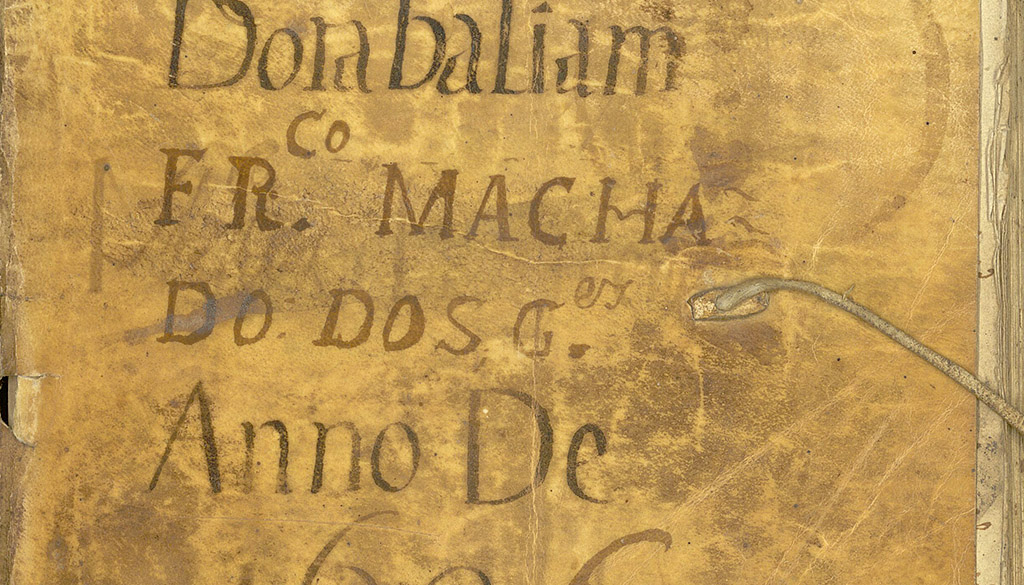 Dotabaliam
FR.co MACHA
DO DOS G.es
Anno De